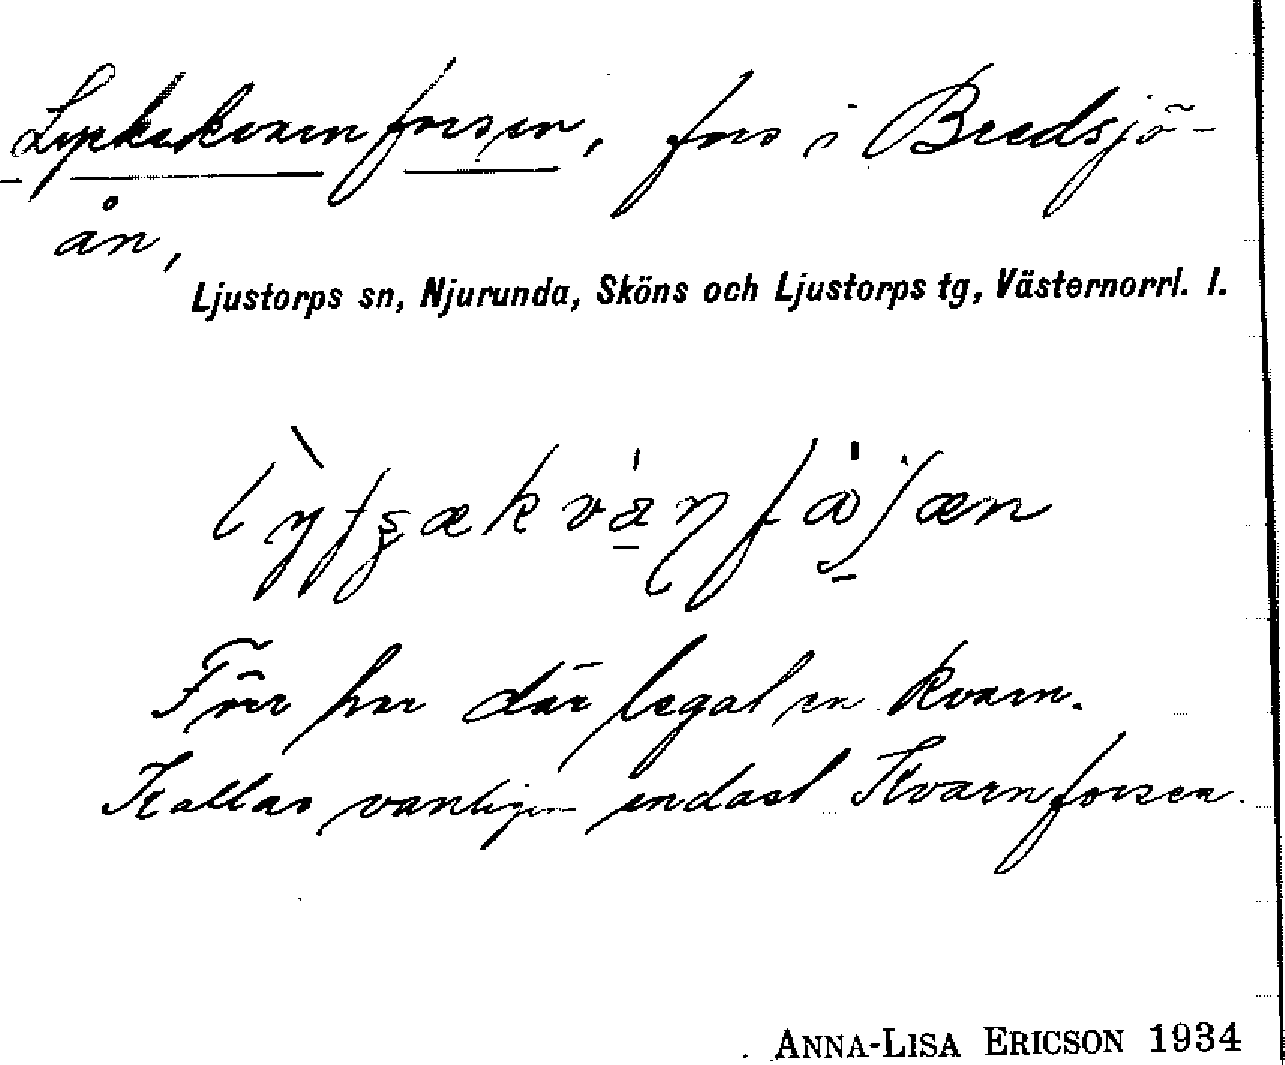 Lyckekvarnforsen, fors i Bredsjö-
ån,
Ljustorps sn, Njurunda, Sköns och Ljustorps tg, Västernorrl. l.
Förr har där legat en kvarn.
Kallas vanligen endast Kvarnforsen.
ANNA-LISA ERICSON 1934